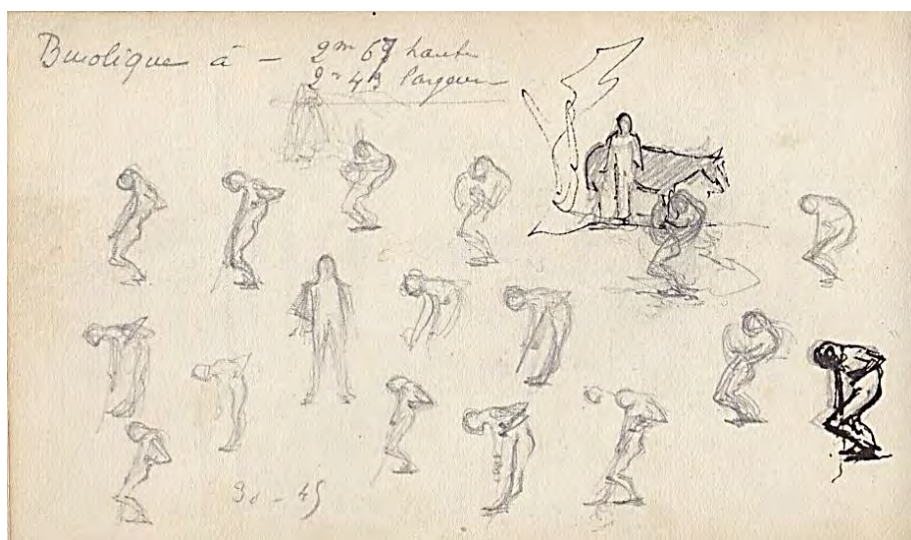 Bucolique à — 2m 67 haute
2m 43 largeur
30 - 45